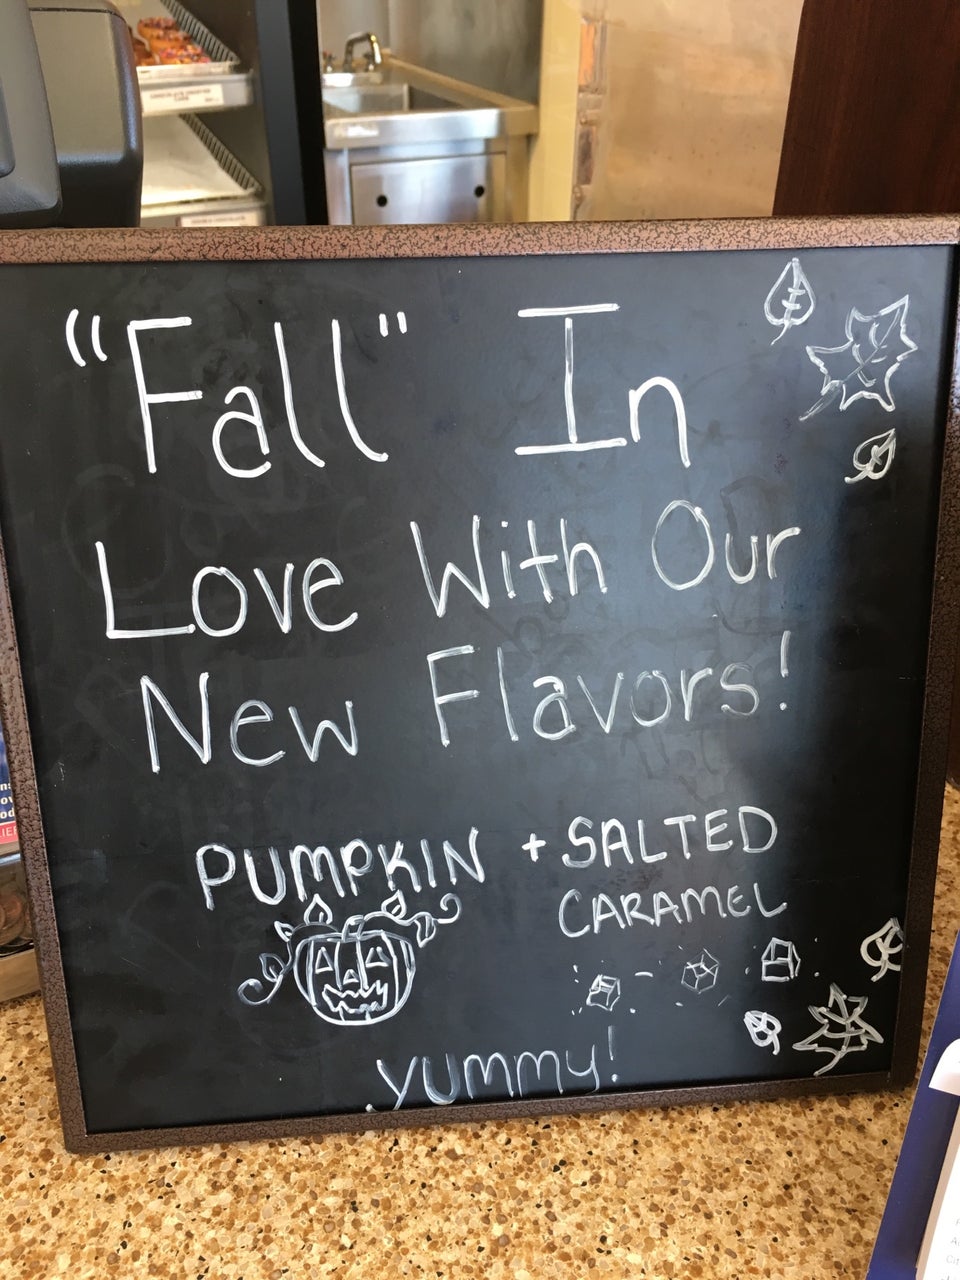 "Fall" In
Love With Our
New Flavors!
PUMPKIN + SALTED
CARAMEL
yummy!